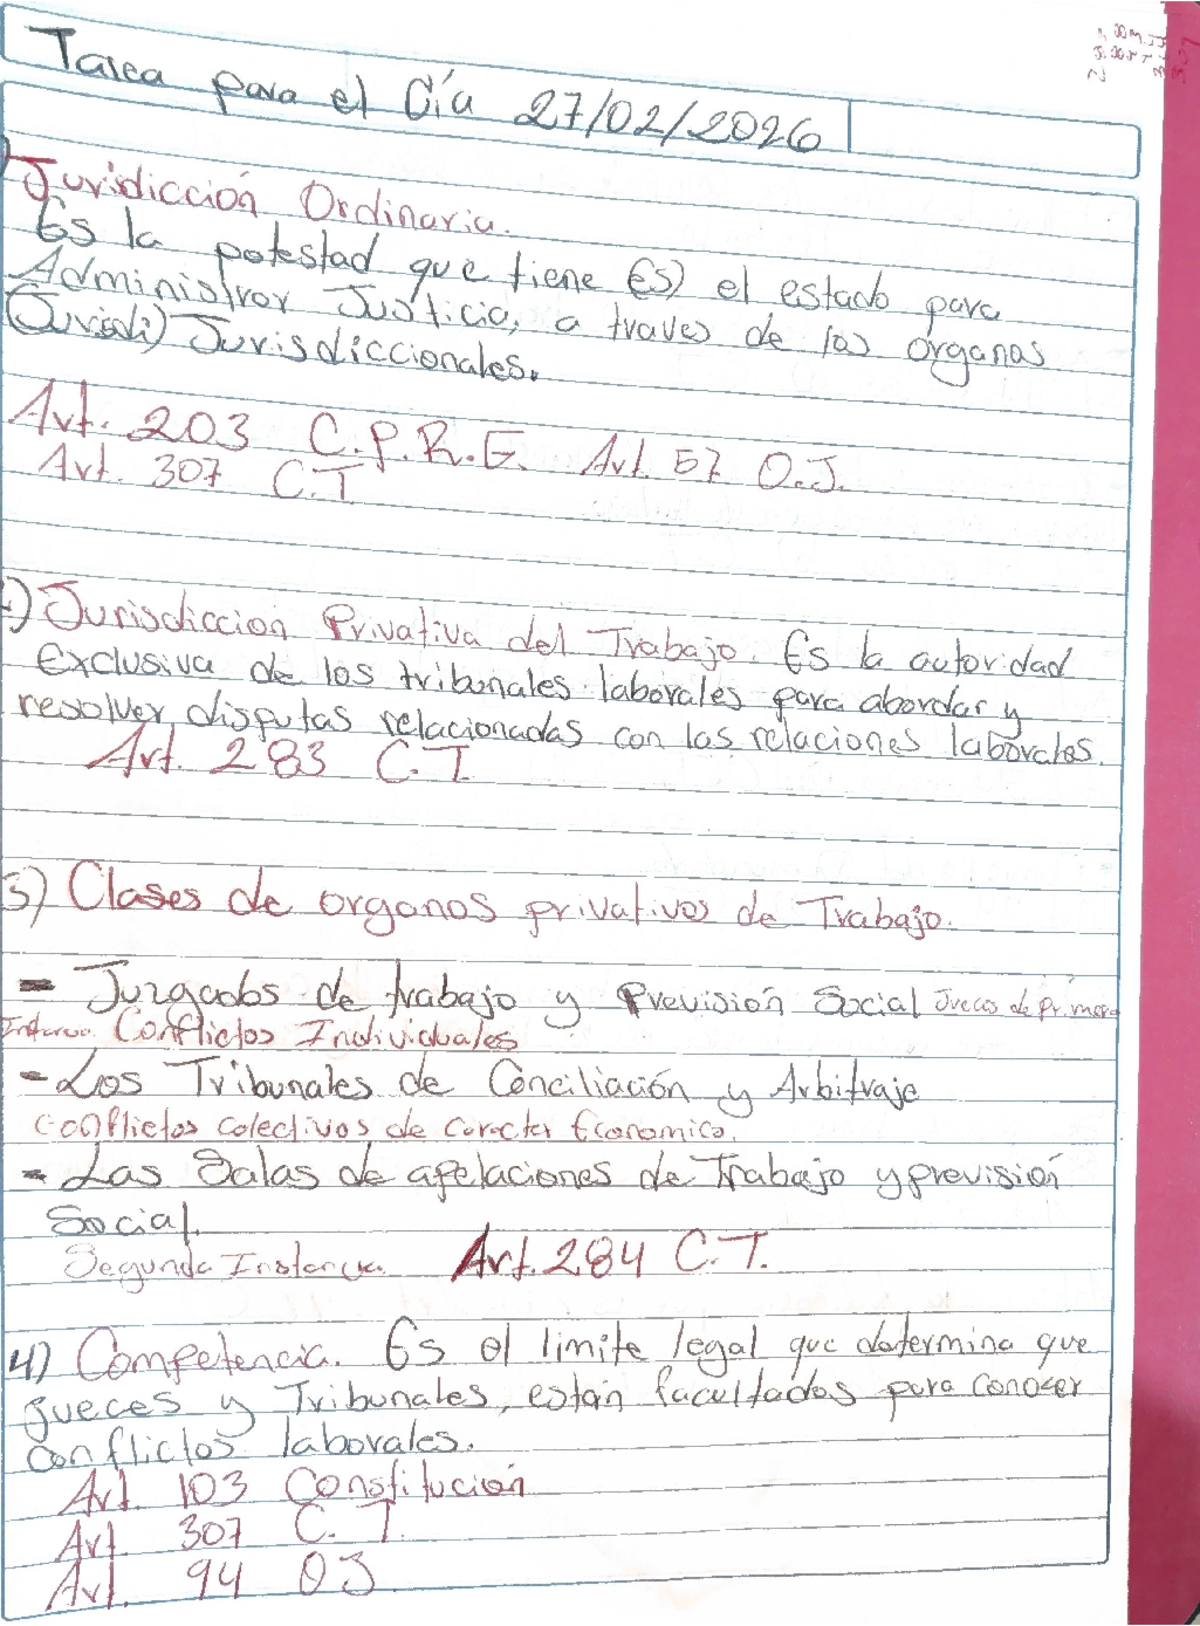 Tarea para el día 27/02/2026
Juridicción Ordinaria.
Es la potestad que tiene (Es) el estado para
Administrar Justicia, a traves de los organos
(Juridi) Jurisdiccionales.
Art. 203 C.P.R.G. Art. 57 O.J.
Art. 307 C.T
) Jurisdiccion Privativa del Trabajo. Es la autoridad
exclusiva de los tribunales laborales para abordar y
resolver disputas relacionadas con las relaciones laborales.
Art. 283 C.T.
3) Clases de organos privativos de Trabajo.
- Juzgados de trabajo y Previsión Social Jueces de Primera
Conflictos Individuales
- Los Tribunales de Conciliación y Arbitraje
Conflictos colectivos de caracter Economico.
- Las Salas de apelaciones de Trabajo y previsión
Social.
Segunda Instancia. Art. 284 C.T.
4) Competencia. Es el limite legal que determina que
jueces y Tribunales, están facultados para conocer
conflictos laborales.
Art. 103 Constitución
Art. 307 C.T.
Art. 94 OJ.